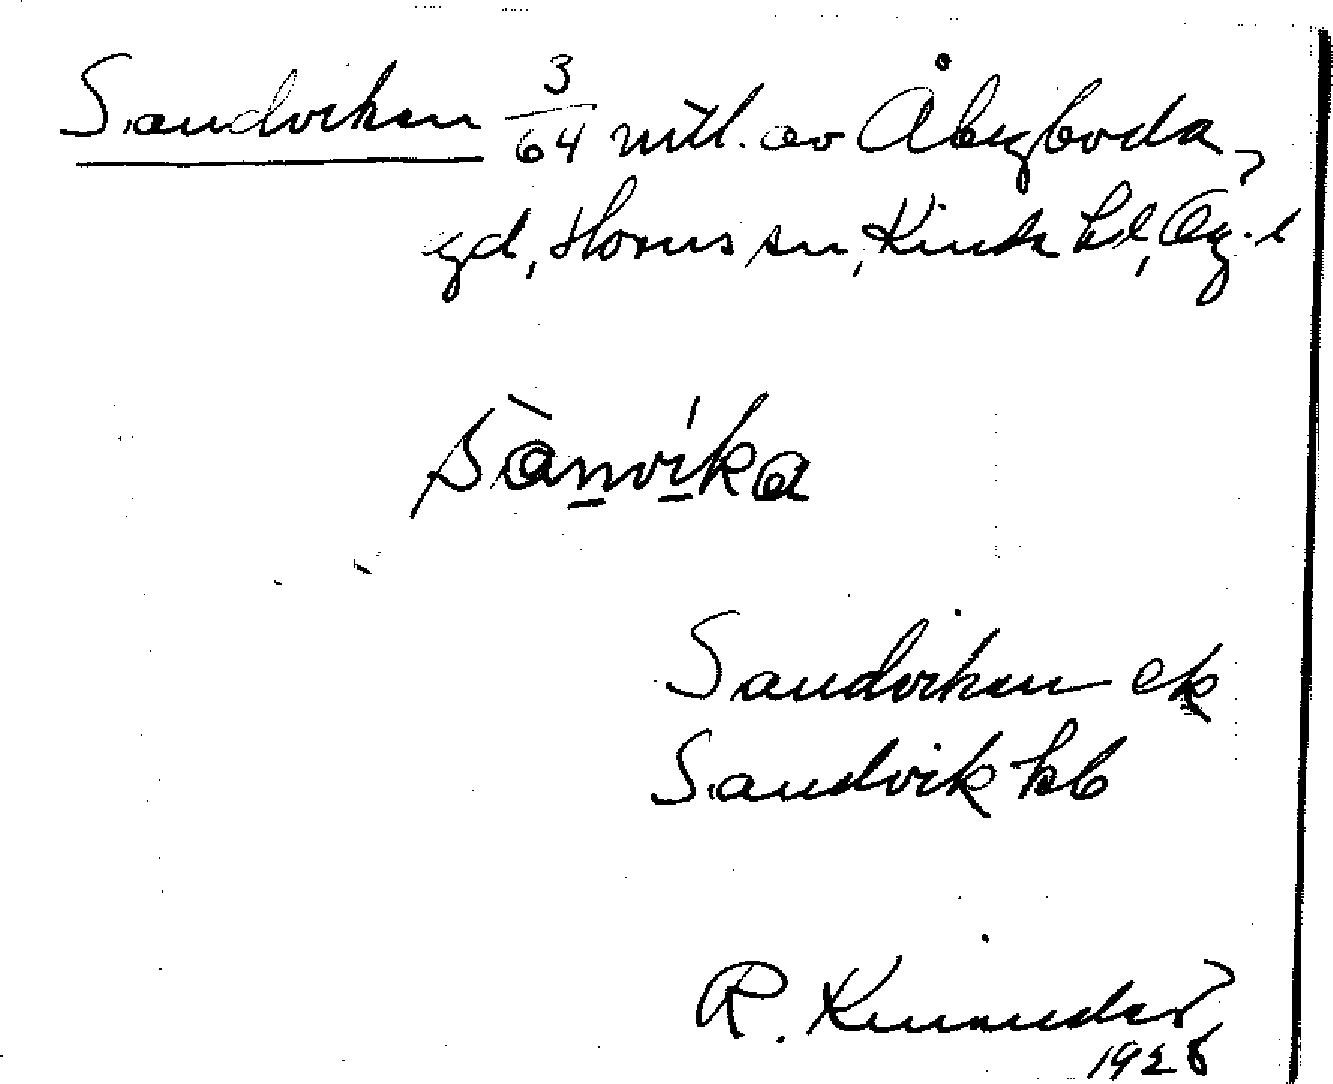 Sandviken 3/64 mtl. av Åbyboda,
gd, Horns sn, Kinda hd, Ög. l
sànvíka
Sandviken ek
Sandvik kb
R. Kinnander
1926